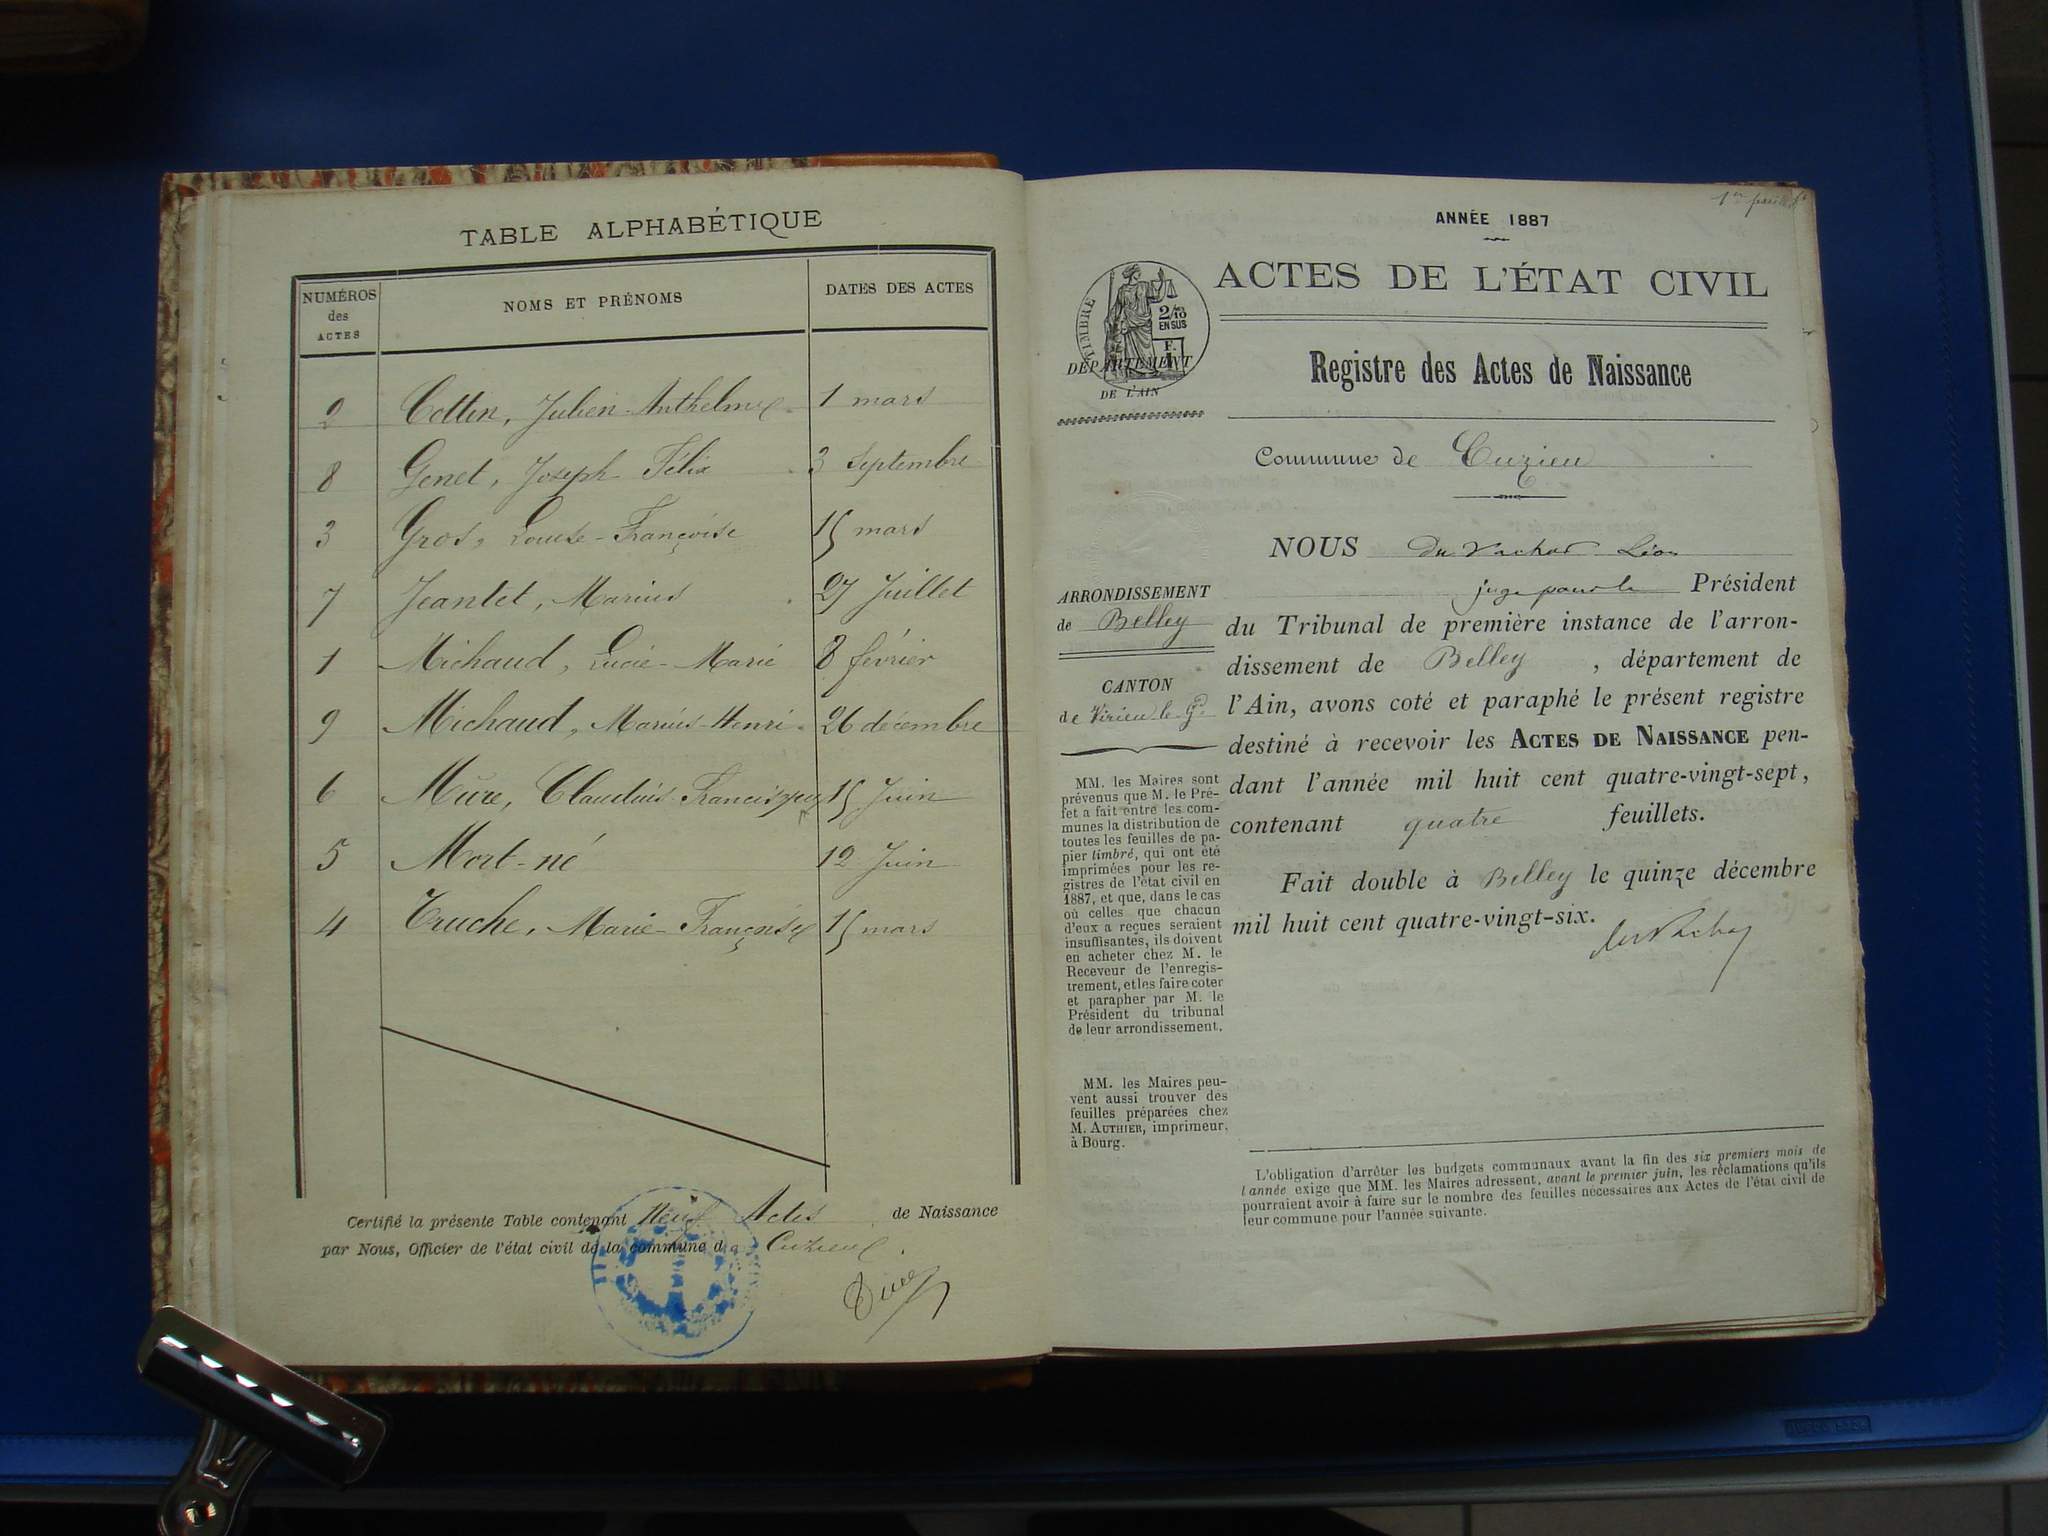 TABLE ALPHABÉTIQUE
NUMÉROS des ACTES NOMS ET PRÉNOMS DATES DES ACTES
2 Cottin, Julien-Anthelme 1 mars
8 Genet, Joseph Félix 3 Septembre
3 Gros, Louise-Françoise 15 mars
7 Jeantet, Marius 27 Juillet
1 Michaud, Lucie-Marie 8 février
9 Michaud, Marius-Henri 26 décembre
6 Mure, Claudius-Francisque 15 Juin
5 Mort-né 12 Juin
4 Truche, Marie-Françoise 15 mars
Certifié la présente Table contenant Neuf Actes de Naissance
par Nous, Officier de l'état civil de la commune d Cuzieu
1er feuillet
ANNÉE 1887
ACTES DE L'ÉTAT CIVIL
TIMBRE
2/10
EN SUS
F.
1
DÉPARTEMENT
DE L'AIN
Registre des Actes de Naissance
Commune de Cuzieu
ARRONDISSEMENT
de Belley
CANTON
de Virieu le Gd
MM. les Maires sont
prévenus que M. le Pré-
fet a fait entre les com-
munes la distribution de
toutes les feuilles de pa-
pier timbré, qui ont été
imprimées pour les re-
gistres de l'état civil en
1887, et que, dans le cas
où celles que chacun
d'eux a reçues seraient
insuffisantes, ils doivent
en acheter chez M. le
Receveur de l'enregis-
trement, et les faire coter
et parapher par M. le
Président du tribunal
de leur arrondissement.
MM. les Maires peu-
vent aussi trouver des
feuilles préparées chez
M. AUTHIER, imprimeur,
à Bourg.
NOUS Du Vachat Léon
juge pour le Président
du Tribunal de première instance de l'arron-
dissement de Belley , département de
l'Ain, avons coté et paraphé le présent registre
destiné à recevoir les ACTES DE NAISSANCE pen-
dant l'année mil huit cent quatre-vingt-sept,
contenant quatre feuillets.
Fait double à Belley le quinze décembre
mil huit cent quatre-vingt-six.
L'obligation d'arrêter les budgets communaux avant la fin des six premiers mois de
l'année exige que MM. les Maires adressent, avant le premier juin, les réclamations qu'ils
pourraient avoir à faire sur le nombre des feuilles nécessaires aux Actes de l'état civil de
leur commune pour l'année suivante.